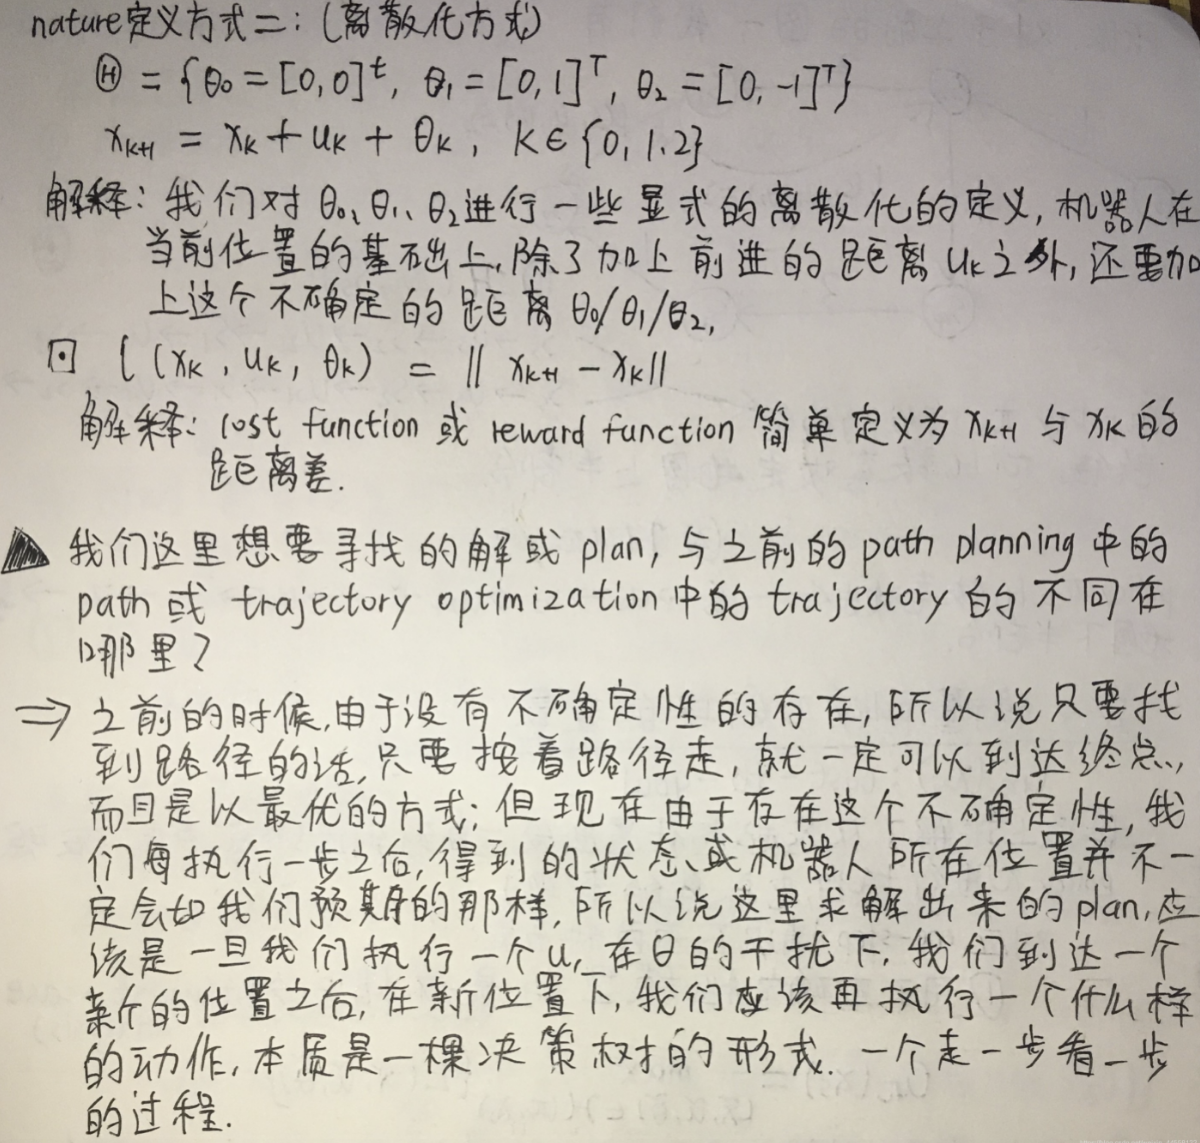 nature定义方式二:(离散化方式)
Ⓗ = {θ0 = [0,0]^t, θ1 = [0,1]^T, θ2 = [0,-1]^T}
xk+1 = xk + uk + θk, k∈{0,1.2}
解释:我们对θ0、θ1、θ2进行一些显式的离散化的定义,机器人在
当前位置的基础上,除了加上前进的距离uk之外,还要加
上这个不确定的距离θ0/θ1/θ2,
⊡ l(xk, uk, θk) = ‖xk+1 - xk‖
解释:cost function或reward function简单定义为xk+1与xk的
距离差.
▲我们这里想要寻找的解或plan,与之前的path planning中的
path或trajectory optimization中的trajectory的不同在
哪里?
⇒ 之前的时候,由于没有不确定性的存在,所以说只要找
到路径的话,只要按着路径走,就一定可以到达终点,
而且是以最优的方式;但现在由于存在这个不确定性,我
们每执行一步之后,得到的状态或机器人所在位置并不一
定会如我们预期的那样,所以说这里求解出来的plan,应
该是一旦我们执行一个u,在θ的干扰下,我们到达一个
新的位置之后,在新位置下,我们应该再执行一个什么样
的动作,本质是一棵决策树的形式.一个走一步看一步
的过程.